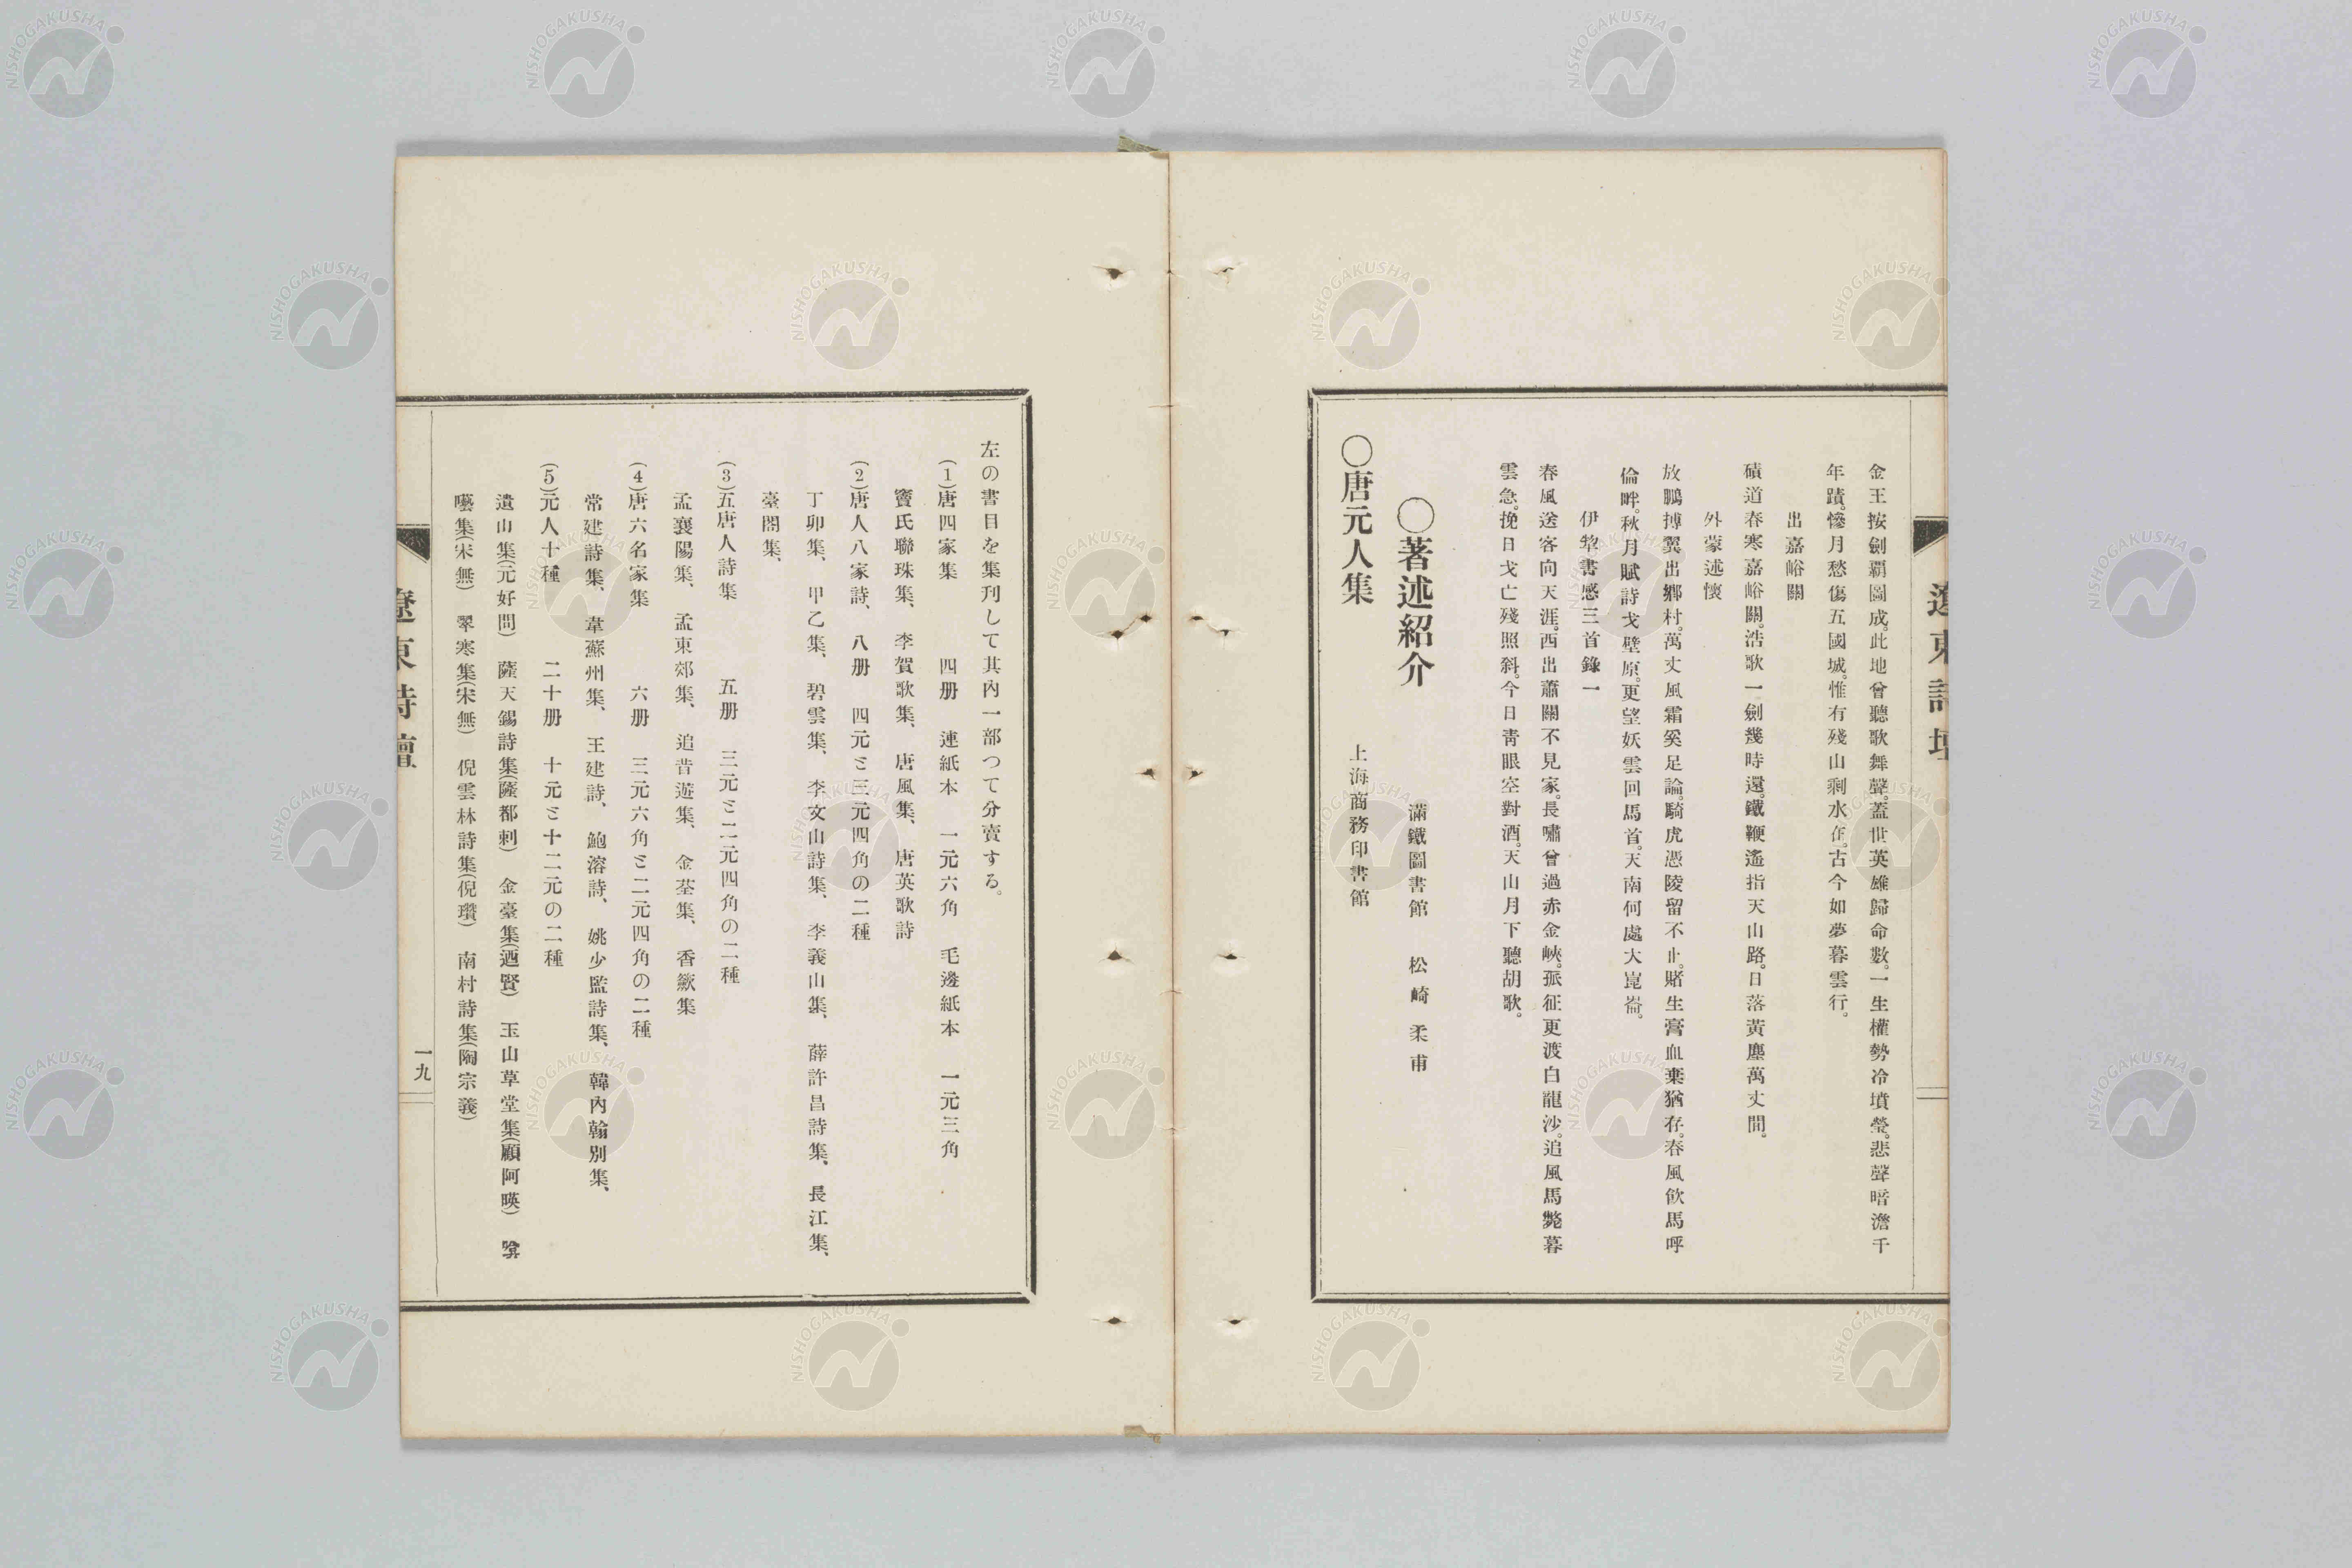 遼東詩壇
金王按劍覇圖成。此地曾聽歌舞聲。蓋世英雄歸命數。一生權勢冷墳瑩。悲聲暗澹千
年蹟。慘月愁傷五國城。惟有殘山剩水在。古今如夢暮雲行。
出嘉峪關
磧道春寒嘉峪關。浩歌一劍幾時還。鐵鞭遙指天山路。日落黃塵萬丈間。
外蒙述懷
放鵬搏翼出鄉村。萬丈風霜奚足論。騎虎憑陵留不止。賭生膏血棄猶存。春風飮馬呼
倫畔。秋月賦詩戈壁原。更望妖雲回馬首。天南何處大崑崙。
伊犂書感三首錄一
春風送客向天涯。西出蕭關不見家。長嘯曾過赤金峽。孤征更渡白龍沙。追風馬斃暮
雲急。挽日戈亡殘照斜。今日靑眼空對酒。天山月下聽胡歌。
○著述紹介 滿鐵圖書館 松崎柔甫
○唐元人集 上海商務印書館
左の書目を集刋して其內一部つて分賣する。
(1)唐四家集 四册 連紙本 一元六角 毛邊紙本 一元三角
竇氏聯珠集、 李賀歌集、 唐風集、 唐英歌詩
(2)唐人八家詩、 八册 四元と三元四角の二種
丁卯集、 甲乙集、 碧雲集、 李文山詩集、 李義山集、 薛許昌詩集、 長江集、
臺閣集、
(3)五唐人詩集 五册 三元と二元四角の二種
孟襄陽集、 孟東郊集、 追昔遊集、 金荃集、 香歛集
(4)唐六名家集 六册 三元六角と二元四角の二種
常建詩集、 韋蘇州集、 王建詩、 鮑溶詩、 姚少監詩集、 韓內翰別集、
(5)元人十種 二十册 十元と十二元の二種
遺山集(元好問) 薩天錫詩集(薩都剌) 金臺集(迺賢) 玉山草堂集(顧阿暎)
囈集(宋無) 翠寒集(宋無) 倪雲林詩集(倪瓚) 南村詩集(陶宗義)
遼東詩壇
一九
NISHOGAKUSHA